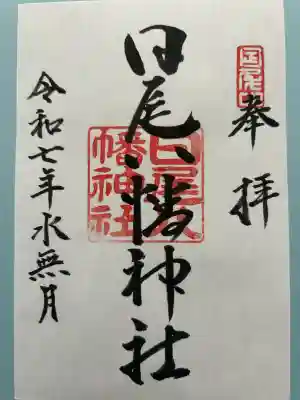 奉拝
日尾八幡神社
日尾八
幡神社
令和七年水無月